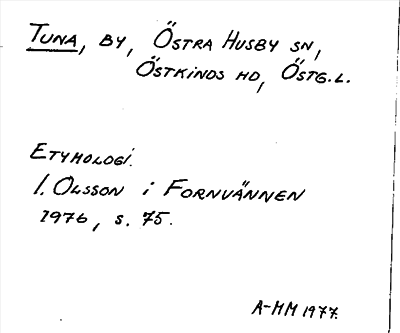 TUNA, BY, ÖSTRA HUSBY SN,
ÖSTKINDS HD, ÖSTG.L.
ETYMOLOGI.
I. OLSSON i FORNVÄNNEN
1976, s. 75.
A-MM 1977.